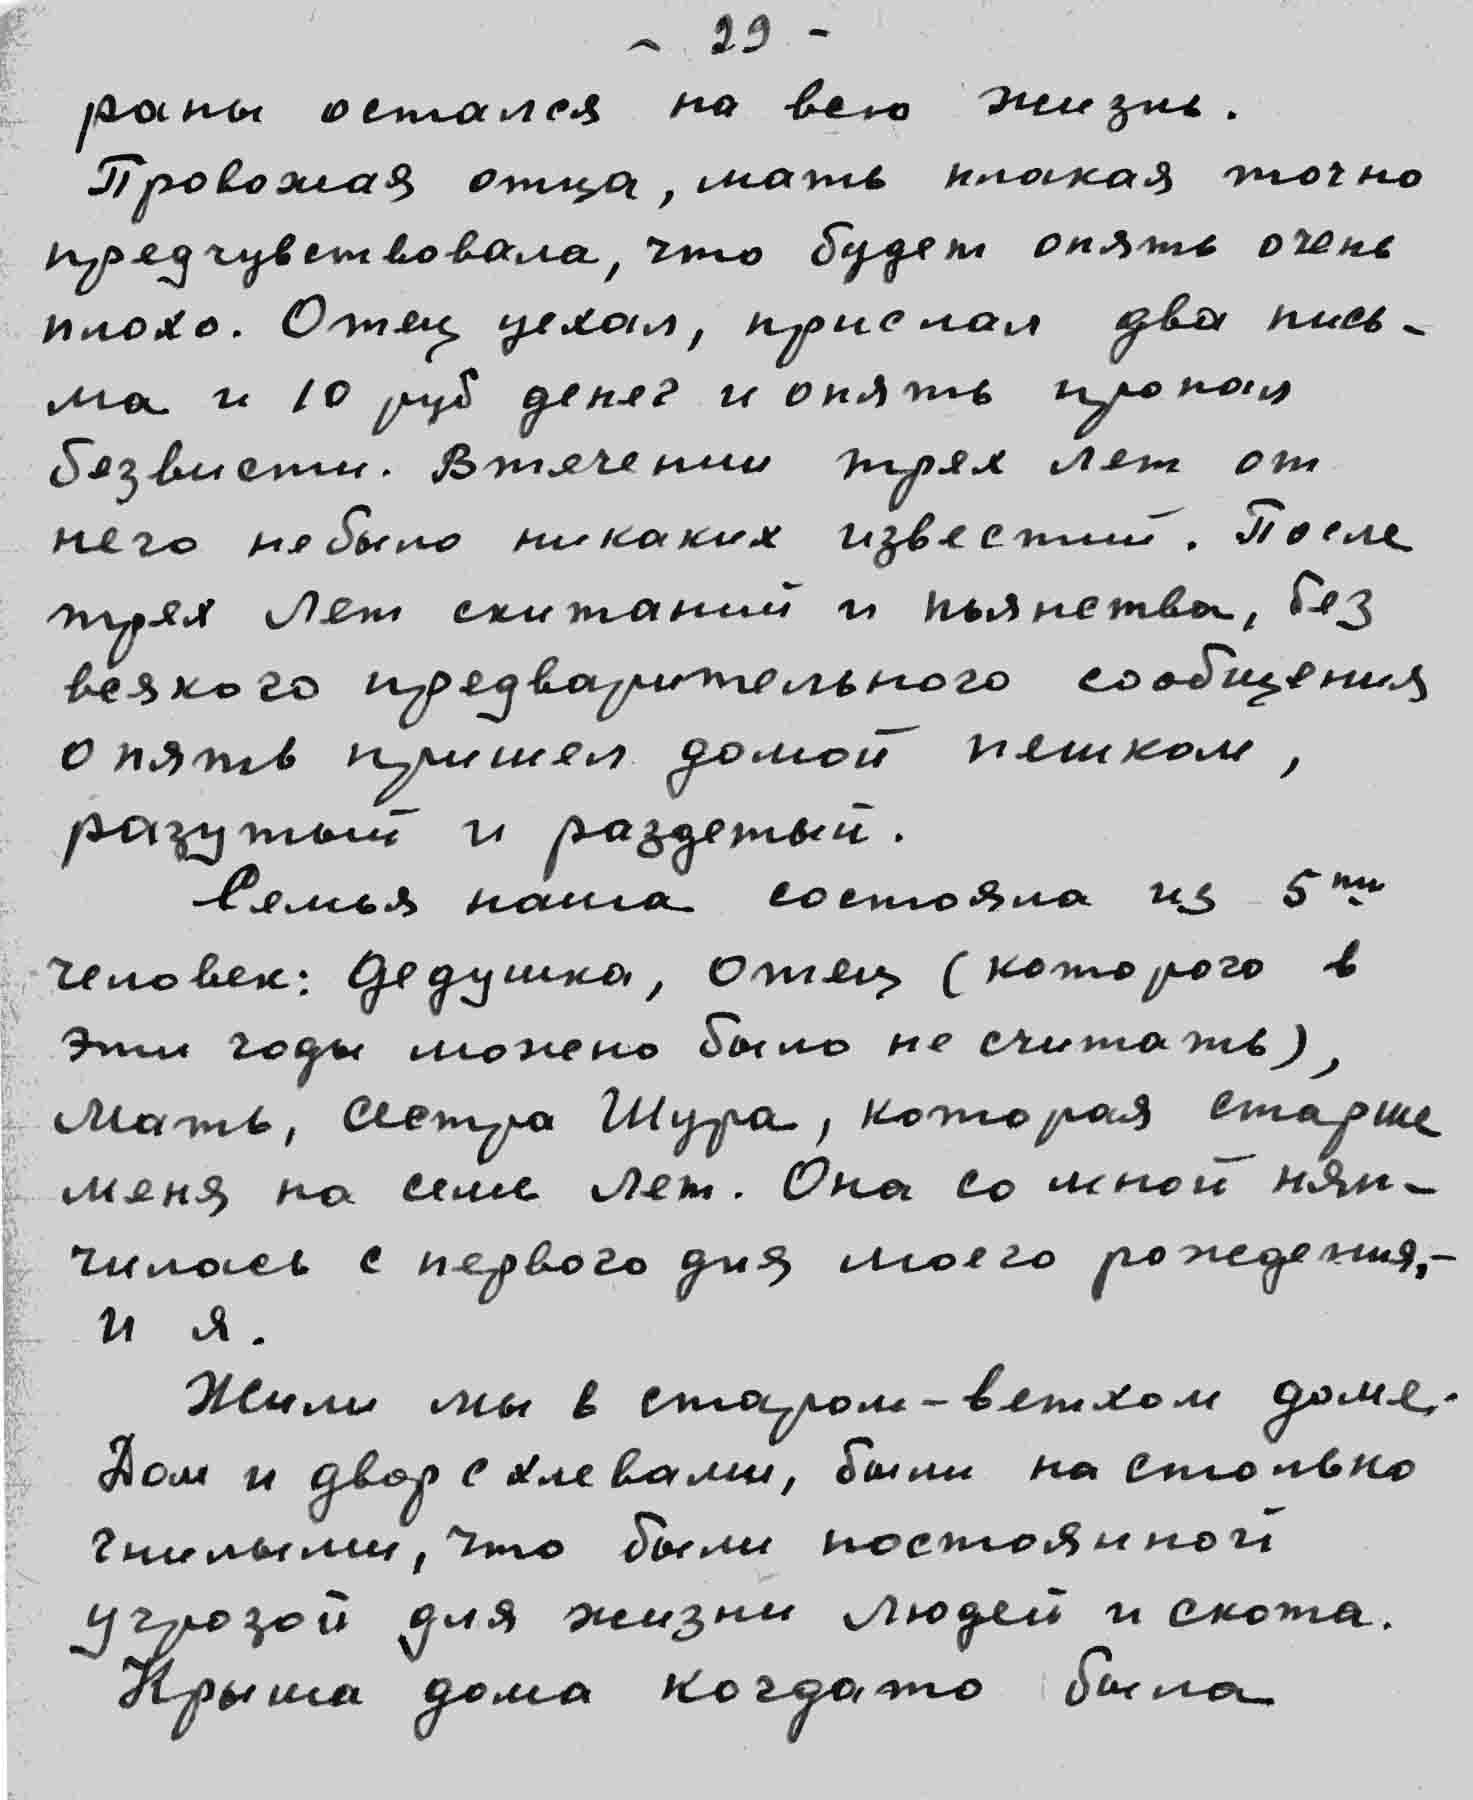 - 29 -
раны остался на всю жизнь.
Провожая отца, мать плакая точно
предчувствовала, что будет опять очень
плохо. Отец уехал, прислал два пись-
ма и 10 руб денег и опять пропал
безвисти. Втечении трех лет от
него небыло никаких известий. После
трех лет скитаний и пьянства, без
всякого предварительного сообщения
опять пришел домой пешком,
разутый и раздетый.
Семья наша состояла из 5ти
человек: Дедушка, отец (которого в
эти годы можно было не считать),
Мать, сестра Шура, которая старше
меня на семь лет. Она со мной нян-
чилась с первого дня моего рождения,-
и я.
Жили мы в старом-ветхом доме.
Дом и двор с хлевами, были на столько
гнилыми, что были постоянной
угрозой для жизни людей и скота.
Крыша дома когдато была